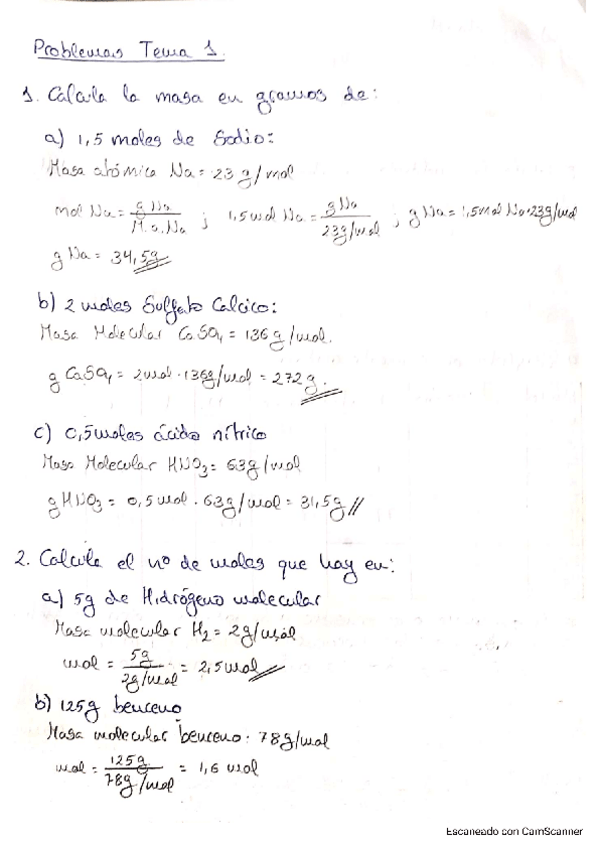 Problemas Tema 1.
1. Calcula la masa en gramos de:
a) 1,5 moles de Sodio:
Masa atómica Na = 23 g/mol
mol Na = g Na / M.a. Na ; 1,5 mol Na = g Na / 23g/mol ; g Na = 1,5mol Na·23g/mol
g Na = 34,5g
b) 2 moles Sulfato Calcico:
Masa Molecular CaSO₄ = 136 g/mol.
g CaSO₄ = 2mol · 136g/mol = 272 g.
c) 0,5 moles ácido nítrico
Masa Molecular HNO₃ = 63g/mol
g HNO₃ = 0,5 mol . 63 g/mol = 31,5g //
2. Calcula el nº de moles que hay en:
a) 5g de Hidrógeno molecular
Masa molecular H₂ = 2g/mol
mol = 5g / 2g/mol = 2,5 mol
b) 125g benceno
Masa molecular benceno: 78g/mol
mol = 125g / 78g/mol = 1,6 mol
Escaneado con CamScanner